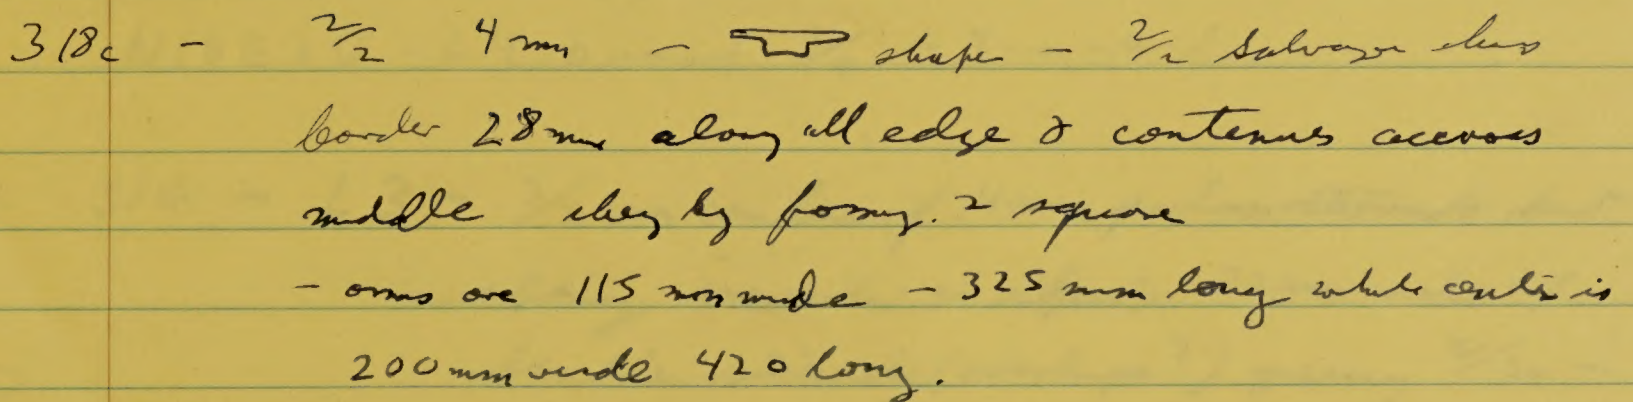 318c - 2/2 4 mm - shape - 2/2 Salvage
border 28 mm along all edge & contenus accross
middle by 2 square
- arms are 115 mm wide - 325 mm long while center is
200 mm wide 420 long.